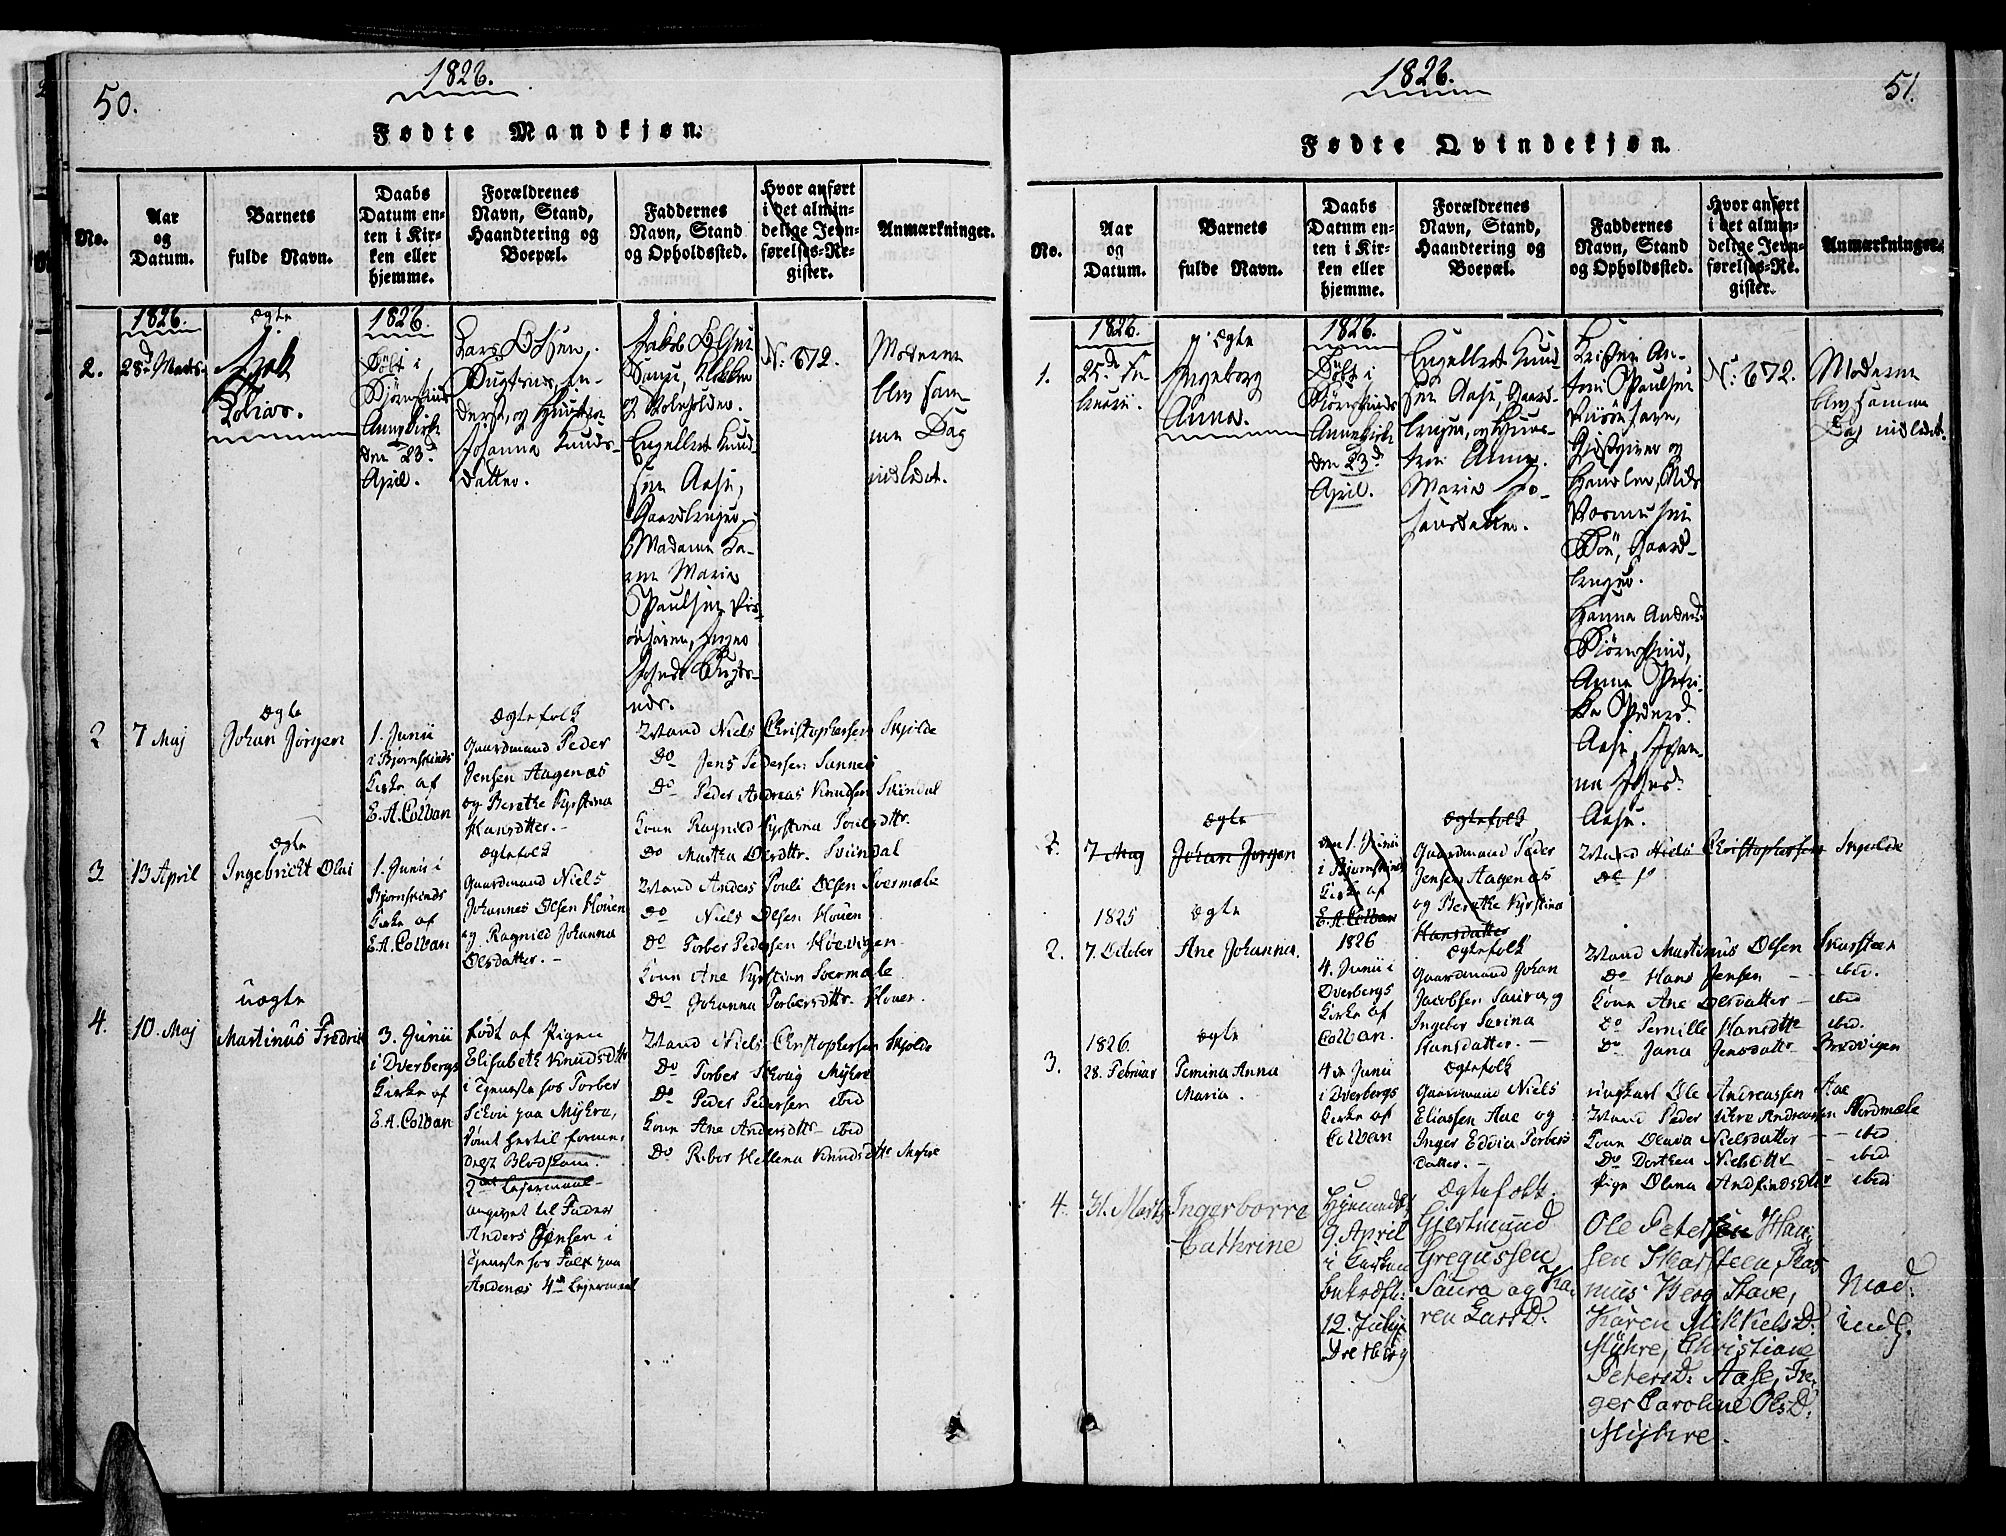 50.
1826.
Fødte Mandkjøn.
No.
Aar
og
Datum.
Barnets
fulde Navn.
Daabs
Datum en-
ten i Kir-
ken eller
hjemme.
Forældrenes
Navn, Stand,
Haandtering og
Boepæl.
Faddernes
Navn, Stand
og Opholdssted.
Hvor anført
i det almin-
delige Jevn-
førelses-Re-
gister.
Anmærkninger.
2.
1826.
28d Marts.
Ægte
Tobias.
1826.
Døbt i
Bjørnskinds
Anne Kirke
den 23d
April.
Lars Olsen
Johanna Knuds-
datter.
Engelbret Knud-
sen Aase,
Gaardbruger,
Madame Ka-
ren Maria
Poulsen Ris-
øehavn,
N: 672.
Moderen
blev sam-
me Dag
indledet.
2
7 Maj
Ægte
Johan Jørgen
1. Junii
i Bjørnskinds
Kirke af
E. A. Colban
Ægtefolk
Gaardmand Peder
Jensen Aagenæs
og Berethe Kyrstina
Hansdatter. -
Wand Niels Christophersen Skjolde
Do Jens Pedersen Sannes
Do Peder Andreas Knudsen Svindal
Kone Ragnild Kyrstina Poulsdttr.
Do Martha Olsdttr. Svindal
3
13 April
Ægte
Ingebricht Olai
1. Junii i
Bjørnskinds
Kirke af
E. A. Colban
Ægtefolk
Gaardmand Niels
Johannes Olsen Houen
og Ragnild Johanna
Olsdatter. -
Wand Anders Pouli Olsen Svermæle
Do Niels Olsen Houen
Do Torber Pedersen Høevigen
Kone Ane Kyrstina Svermæle
Do Johanna Torbersdttr. Houen.
4.
10. Maj
Uægte
Martinus Fredrik
3. Junii
i Dverbergs
Kirke af
E. A. Colban
Født af Pigen
Elisabeth Knudsdttr
i Tjeneste hos Torber
paa Myhre,
Dømt hertil formedelst
Blodskam.
2den Lejermaal
angivet til Fader
Anders Jensen i
Tjeneste hos Falk paa
Andenæs 4de Lejermaal
Wand Niels Christophersen Skjolde
Do Torber Skovig Myhre
Do Peder Pedersen ibid
Kone Ane Andersdttr - ibid
Do Hellena Knudsdttr Myhre
1826.
51.
Fødte Qvindekjøn.
No.
Aar
og
Datum.
Barnets
fulde Navn.
Daabs
Datum en-
ten i Kir-
ken eller
hjemme.
Forældrenes
Navn, Stand,
Haandtering og
Boepæl.
Faddernes
Navn, Stand
og Opholdssted.
Hvor anført
i det almin-
delige Jevn-
førelses-Re-
gister.
Anmærkninger.
1.
1826.
25d Fe-
bruarii.
Ægte
Ingeborg
Anna.
1826.
Døbt i
Bjørnskinds
Annekirke
den 23d
April.
Engelbret Knud-
sen Aase, Gaard-
bruger, og Hus-
troe Anne
Maria Jo-
hansdatter.
Poulsen
Risøehavn,
Giestgiver og
Handler, Nils
Rasmussen
Bøe, Gaard-
bruger.
Hanna Andersd.
Bjørnskind,
Anna Petri-
ka Pedersd.
Aase, Johan-
na Johansd.
Aase.
N: 672.
Moderen
blev samme
Dag indledet.
2.
7 Maj
Ægte
Johan Jørgen
den 1. Junii
i Bjørnskinds
Kirke af
E. A. Colban
Ægtefolk
Gaardmand Peder
Jensen Aagenæs
og Berethe Kyrstina
Hansdatter
Wand Niels Christophersen Skjolde
Do
2.
1825
7. October
Ægte
Ane Johanna.
1826
4. Junii i
Dverbergs
Kirke af
Colban.
Ægtefolk
Gaardmand Johan
Jacobsen Saura, og
Ingebor Serina
Hansdatter. -
Wand Martinus Olsen Skarsteen
Do Hans Jensen - ibid.
Kone Ane Olsdatter - ibid
Do Pernille Hansdttr ibid.
Do Jana Jensdattr Bredvigen
3.
1826.
28. Februar
Ægte
Pemina Anna
Maria.
4de Junii
i Dverbergs
Kirke af
Colban
Ægtefolk
Gaardmand Niels
Eliassen Aae og
Inger Edvia Torbers
datter. -
Ungkarl Ole Andreassen Aae
Wand Peder Andreassen Nordmæle
Kone Olava Nielsdatter - ibid
Do Dorthea Nielsdttr - ibid
Pige Olena Andfindsdttr ibid
4.
31. Marts
Ingerborre
Cathrine
Hjemmedøbt
9. April
i Kirken
bekræftet
12. Julij
Dretberg
Ægtefolk.
Gjertmund
Gregussen
Saura og Ka-
ren LarsD.
Ole Petersen Han-
sen Skarsteen, Ras
mus Berg Stave,
Karen MikkelsD.
Myhre, Christiane
PetersD. Aase, In-
ger Caroline OlsD.
Myhre.
Mod.
indl.